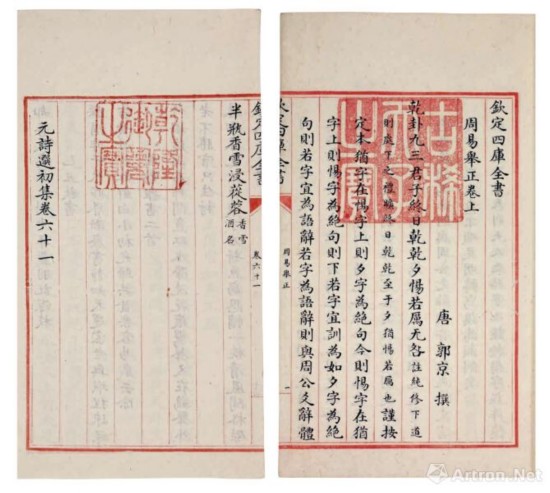 欽定四庫全書
周易舉正卷上
唐 郭京 撰
乾卦九三君子終日乾乾夕惕若厲无咎註純修下道
則處下之禮曠終日乾乾至于夕猶惕若厲也 謹按
定本猶字在惕字上則夕字為絶句今則惕字在猶
字上則惕字為絶句則下若字宜訓為如夕字為絶
句則若字宜為語辭若字為語辭則與周公爻辭體
古稀天子之寶
欽定四庫全書
周易舉正
一
欽定四庫全書
卷六十一
半瓶香雪浸葠蓉香雪酒名
乾隆御覽之寶
元詩選初集卷六十一
雅昌艺术网
Artron.Net